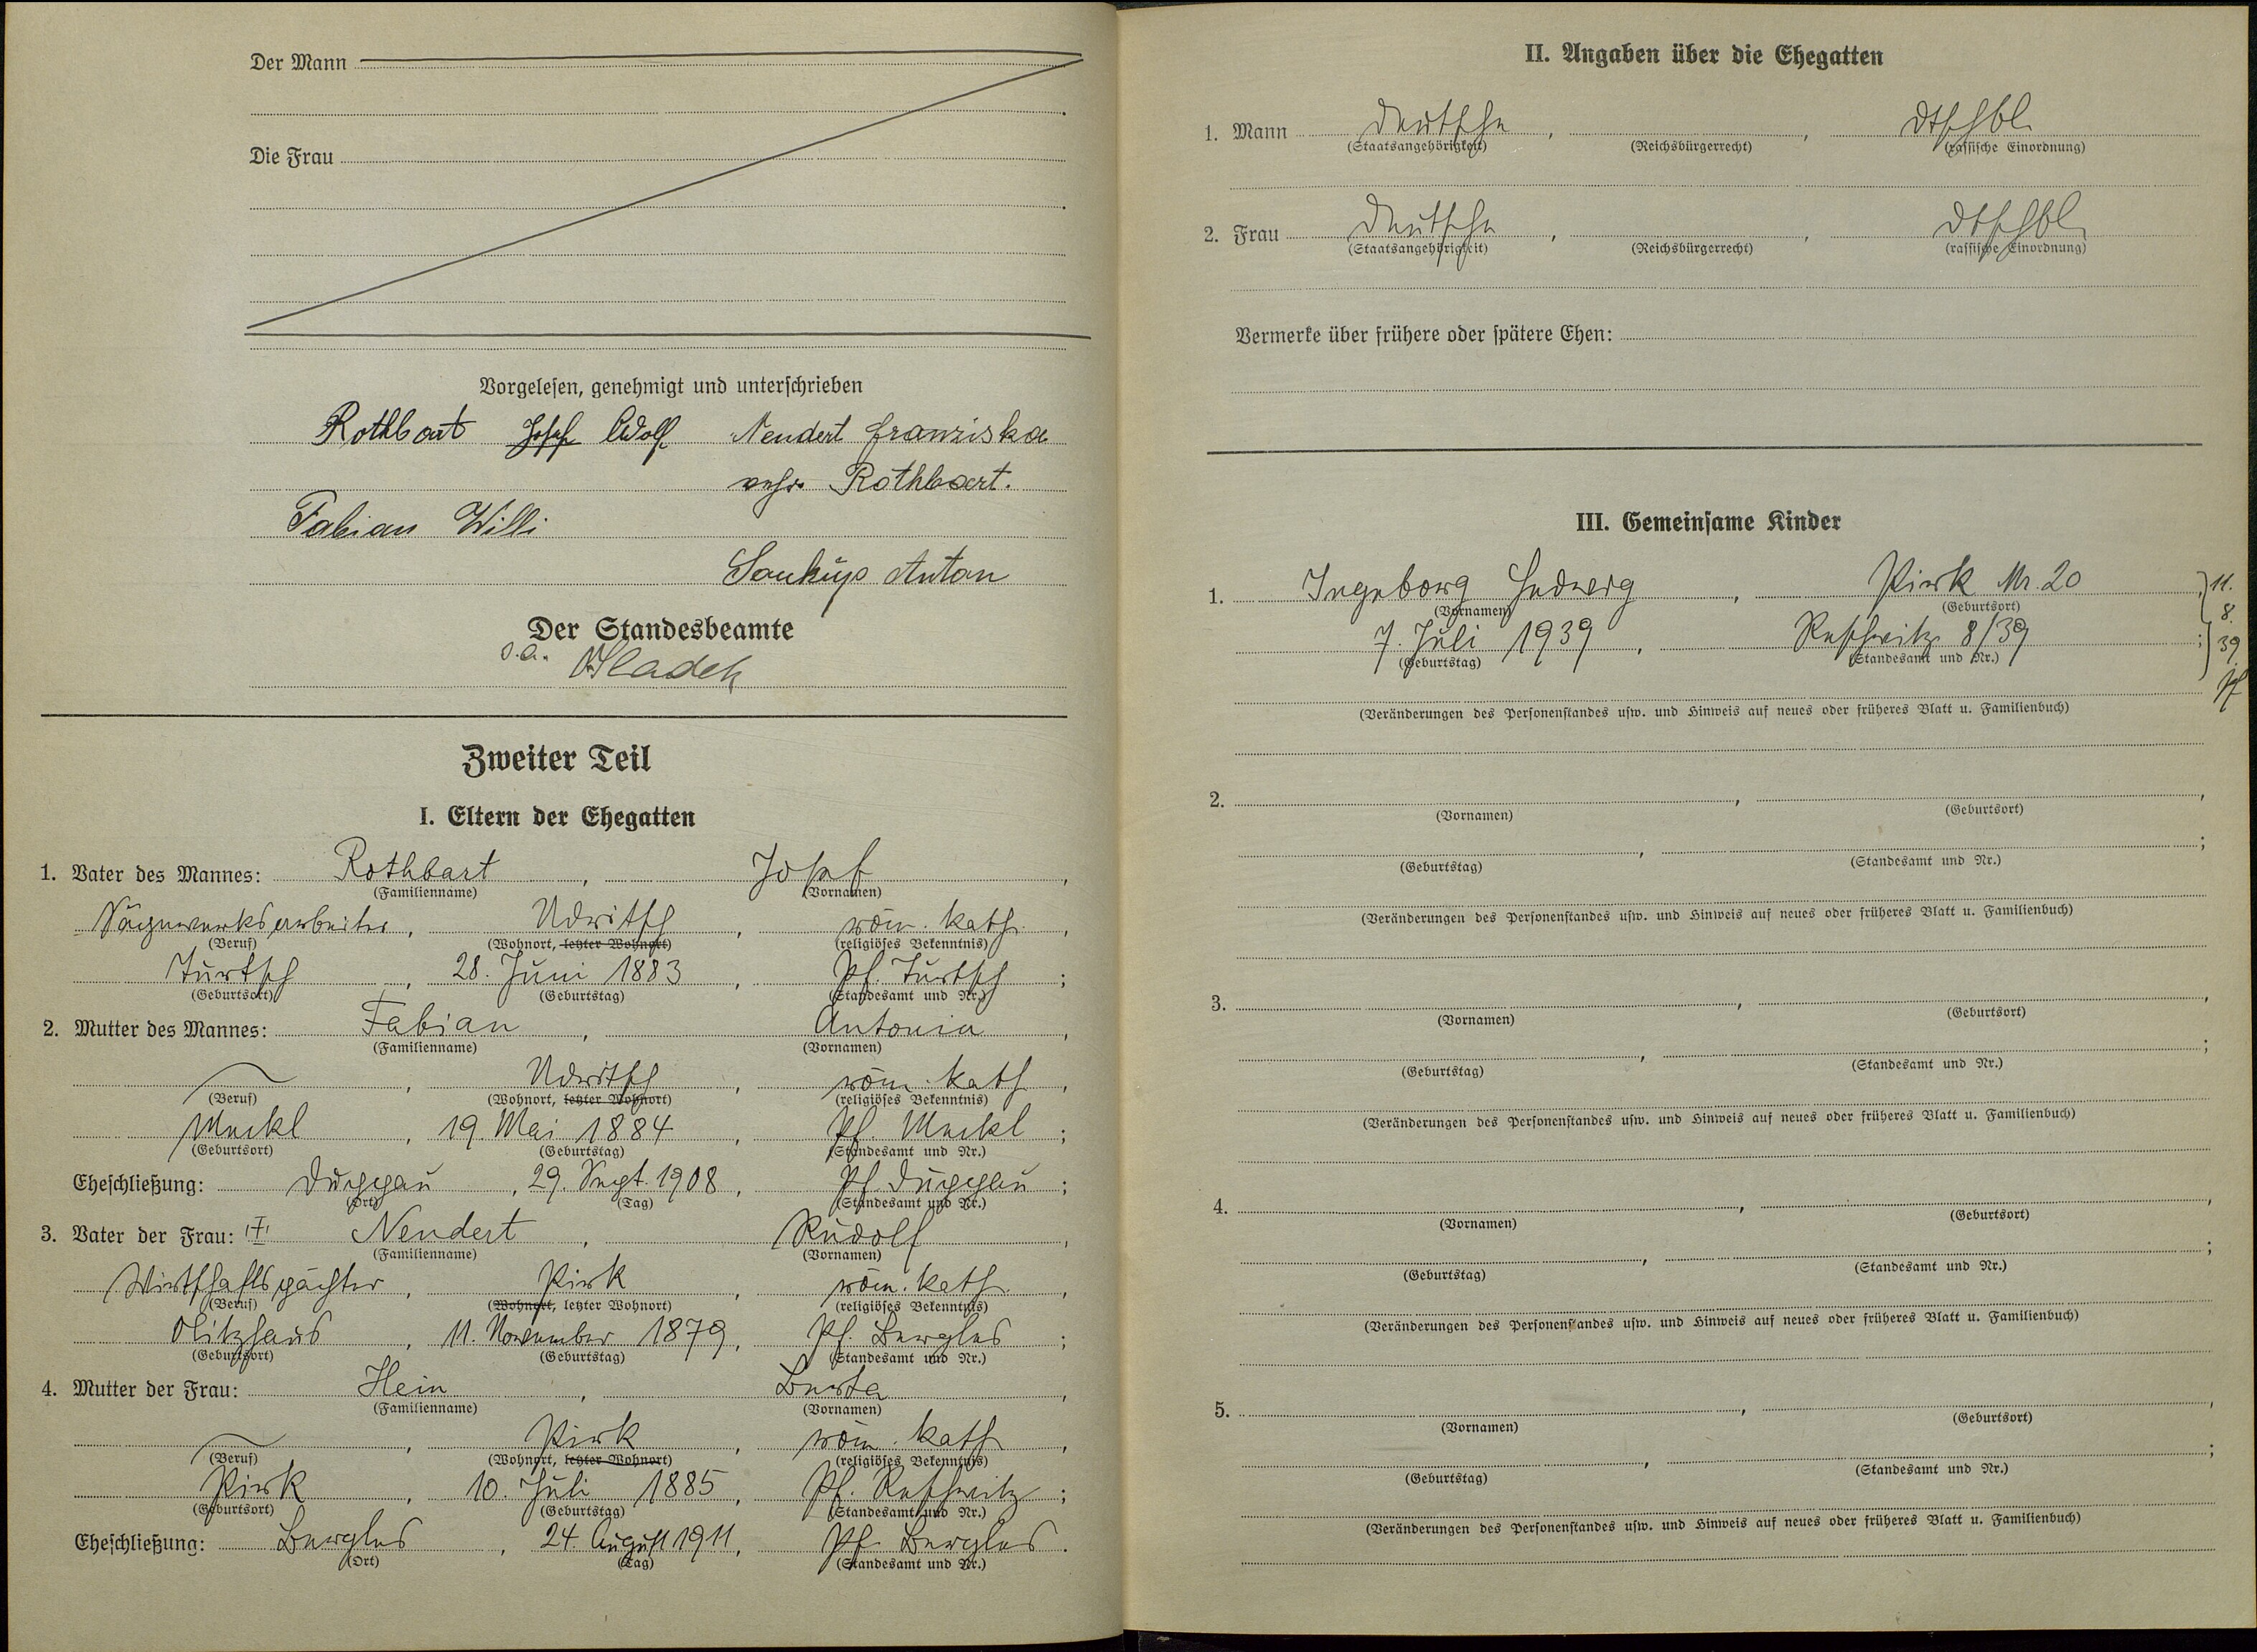 Der Mann
Die Frau
Vorgelesen, genehmigt und unterschrieben
Rothbart Josef Adolf Nendert Franziska
verh. Rothbart.
Fabian Willi
Soukup Anton
Der Standesbeamte
Hladek
Zweiter Teil
I. Eltern der Ehegatten
1. Vater des Mannes: Rothbart, Josef,
(Familienname) (Vornamen)
Sägewerksarbeiter, Udritsch, röm. kath.,
(Beruf) (Wohnort, letzter Wohnort) (religiöses Bekenntnis)
Turtsch, 28. Juni 1883, Pf. Turtsch;
(Geburtsort) (Geburtstag) (Standesamt und Nr.)
2. Mutter des Mannes: Fabian, Antonia,
(Familienname) (Vornamen)
, Udritsch, röm. kath,
(Beruf) (Wohnort, letzter Wohnort) (religiöses Bekenntnis)
Meckl, 19. Mai 1884, Pf. Meckl;
(Geburtsort) (Geburtstag) (Standesamt und Nr.)
Eheschließung: Duppau, 29. Sept. 1908, Pf. Duppau;
(Ort) (Tag) (Standesamt und Nr.)
3. Vater der Frau: "†" Nendert, Rudolf,
(Familienname) (Vornamen)
Wirtschaftspächter, Pirk, röm. kath.,
(Beruf) (Wohnort, letzter Wohnort) (religiöses Bekenntnis)
Olitzhaus, 11. November 1879, Pf. Bergles;
(Geburtsort) (Geburtstag) (Standesamt und Nr.)
4. Mutter der Frau: Hein, Berta,
(Familienname) (Vornamen)
, Pirk, röm. kath,
(Beruf) (Wohnort, letzter Wohnort) (religiöses Bekenntnis)
Pirk, 10. Juli 1885, Pf. Reschwitz;
(Geburtsort) (Geburtstag) (Standesamt und Nr.)
Eheschließung: Bergles, 24. August 1911, Pf. Bergles.
(Ort) (Tag) (Standesamt und Nr.)
II. Angaben über die Ehegatten
1. Mann Deutsche, , dtschbl.
(Staatsangehörigkeit) (Reichsbürgerrecht) (rassische Einordnung)
2. Frau Deutsche, , dtschbl.
(Staatsangehörigkeit) (Reichsbürgerrecht) (rassische Einordnung)
Vermerke über frühere oder spätere Ehen:
III. Gemeinsame Kinder
1. Ingeborg Hedwig, Pirk Nr. 20, 11.
(Vornamen) (Geburtsort) 8.
7. Juli 1939, Reschwitz 8/39; 39.
(Geburtstag) (Standesamt und Nr.)
(Veränderungen des Personenstandes usw. und Hinweis auf neues oder früheres Blatt u. Familienbuch)
2. , ,
(Vornamen) (Geburtsort)
, ;
(Geburtstag) (Standesamt und Nr.)
(Veränderungen des Personenstandes usw. und Hinweis auf neues oder früheres Blatt u. Familienbuch)
3. , ,
(Vornamen) (Geburtsort)
, ;
(Geburtstag) (Standesamt und Nr.)
(Veränderungen des Personenstandes usw. und Hinweis auf neues oder früheres Blatt u. Familienbuch)
4. , ,
(Vornamen) (Geburtsort)
, ;
(Geburtstag) (Standesamt und Nr.)
(Veränderungen des Personenstandes usw. und Hinweis auf neues oder früheres Blatt u. Familienbuch)
5. , ,
(Vornamen) (Geburtsort)
, ;
(Geburtstag) (Standesamt und Nr.)
(Veränderungen des Personenstandes usw. und Hinweis auf neues oder früheres Blatt u. Familienbuch)